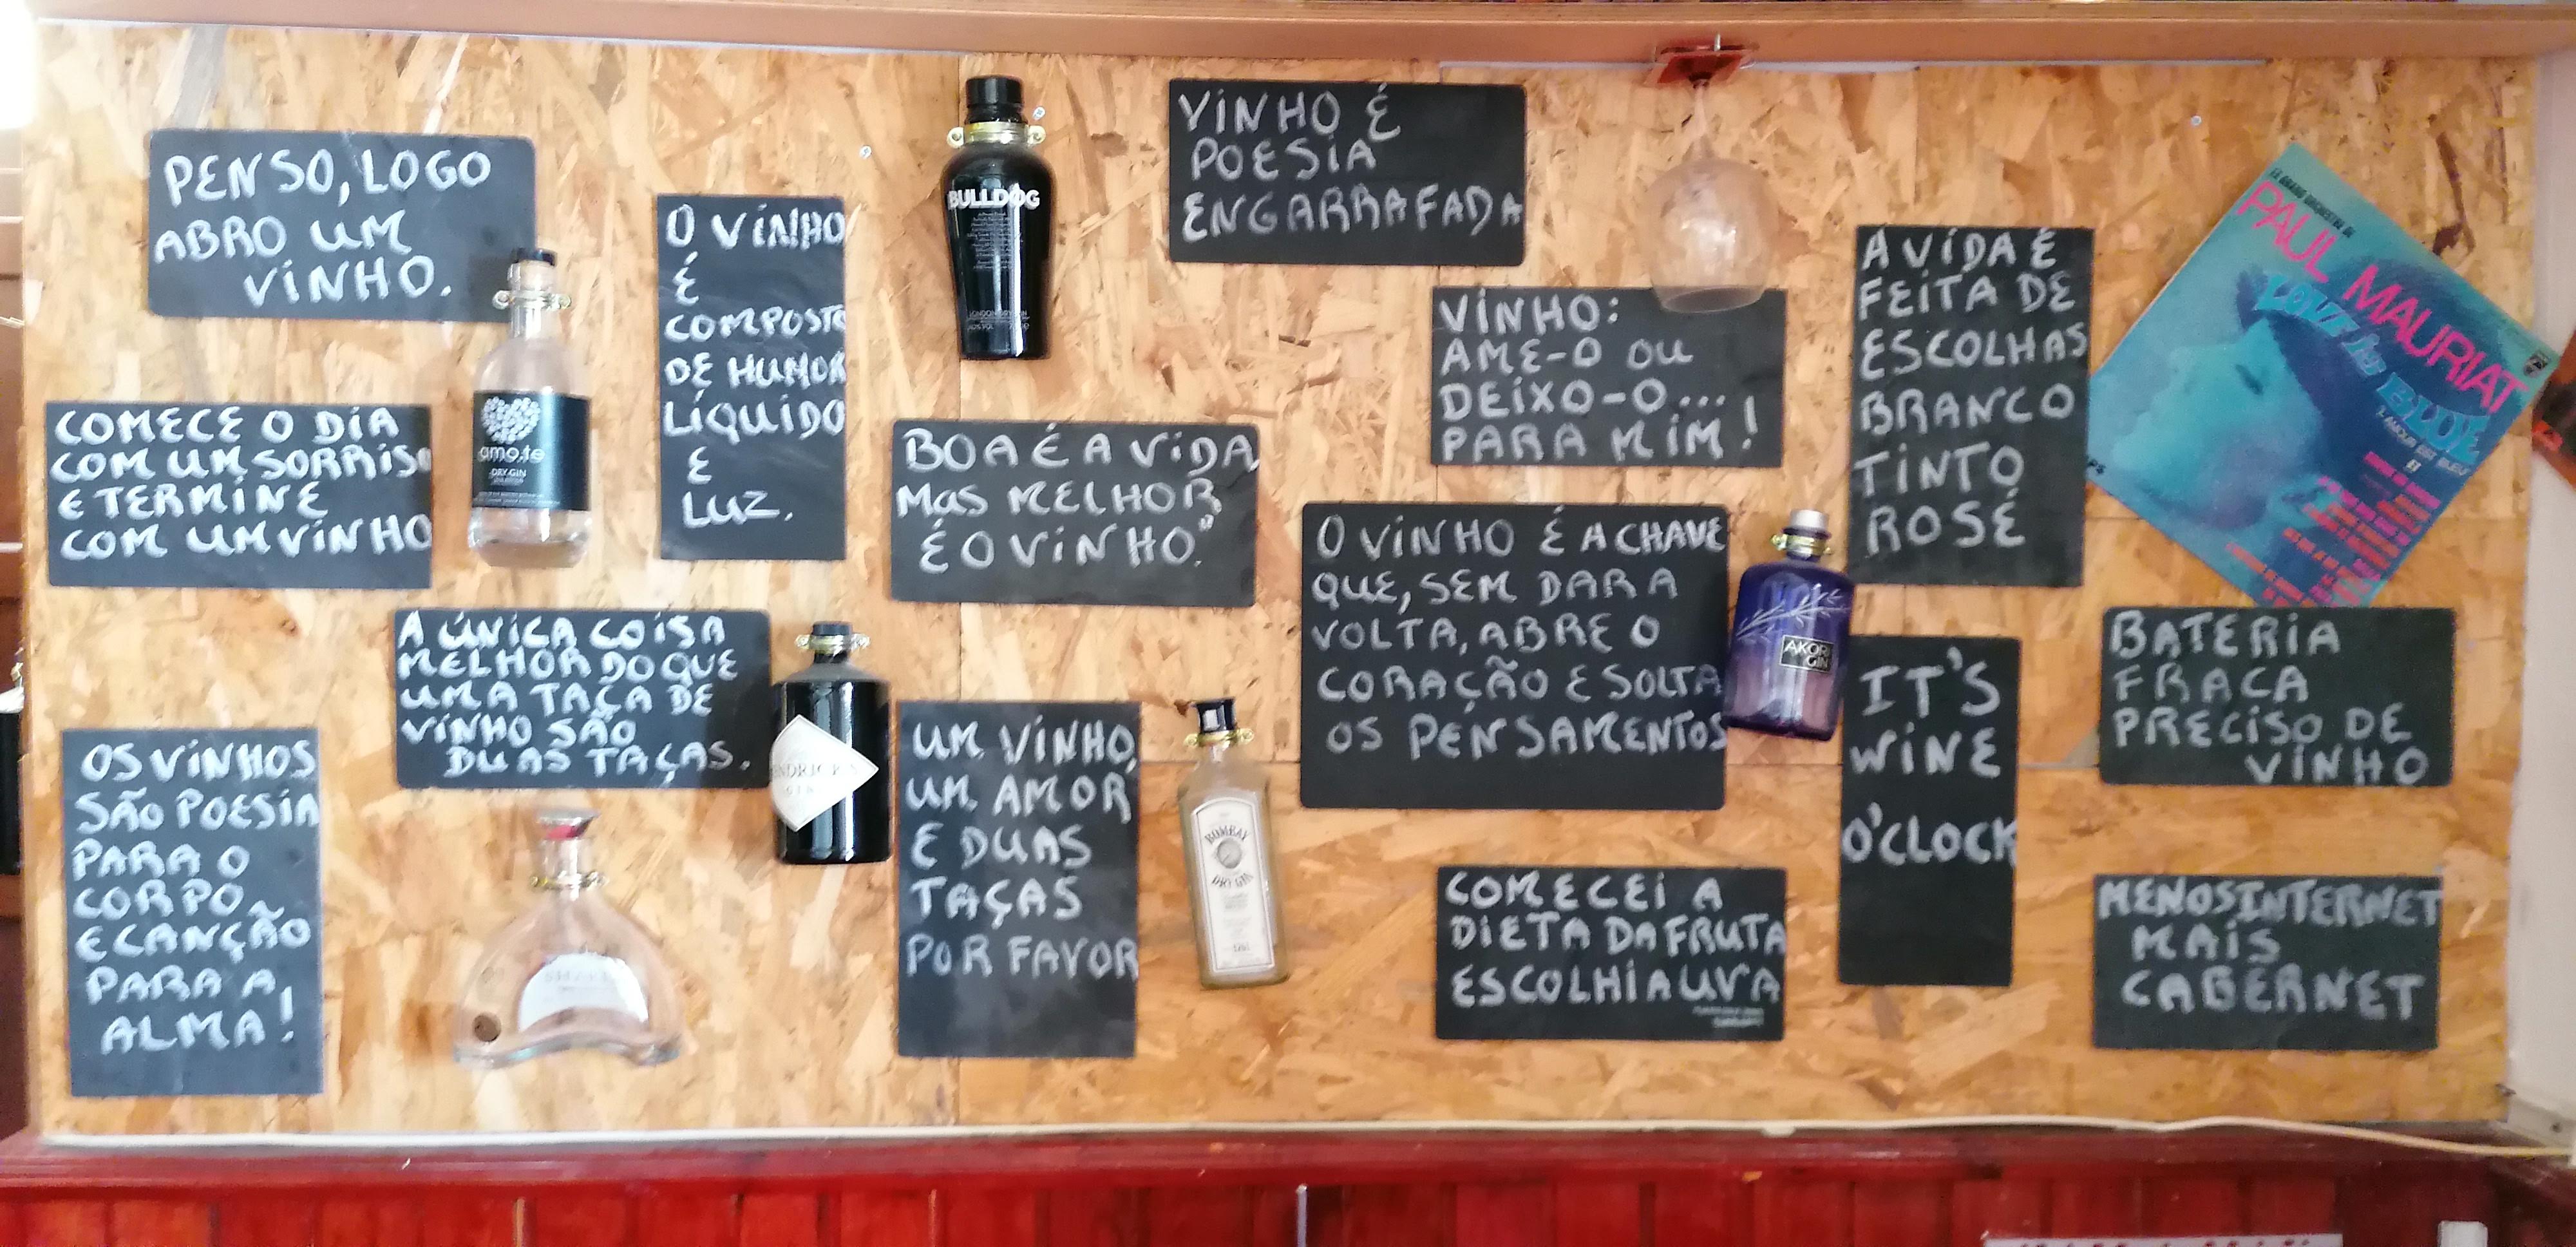 PENSO, LOGO
ABRO UM
VINHO.
COMECE O DIA
COM UM SORRISO
E TERMINE
COM UM VINHO
OS VINHOS
SÃO POESIA
PARA O
CORPO
E CANÇÃO
PARA A
ALMA!
amo.te
DRY GIN
A ÚNICA COISA
MELHOR DO QUE
UMA TAÇA DE
VINHO SÃO
DUAS TAÇAS.
O VINHO
É
COMPOSTO
DE HUMOR
LÍQUIDO
E
LUZ.
BULLDOG
LONDON DRY GIN
BOA É A VIDA,
MAS MELHOR
É O VINHO."
HENDRICK'S
GIN
UM VINHO,
UM AMOR
E DUAS
TAÇAS
POR FAVOR
BOMBAY
DRY GIN
VINHO É
POESIA
ENGARRAFADA
VINHO:
AME-O OU
DEIXO-O...
PARA MIM!
O VINHO É A CHAVE
QUE, SEM DAR A
VOLTA, ABRE O
CORAÇÃO E SOLTA
OS PENSAMENTOS
AKORI
GIN
COMECEI A
DIETA DA FRUTA
ESCOLHI A UVA
A VIDA É
FEITA DE
ESCOLHAS
BRANCO
TINTO
ROSÉ
IT'S
WINE
O'CLOCK
LE GRAND ORCHESTRE DE
PAUL MAURIAT
LOVE IS BLUE
L'AMOUR EST BLEU
BATERIA
FRACA
PRECISO DE
VINHO
MENOS INTERNET
MAIS
CABERNET